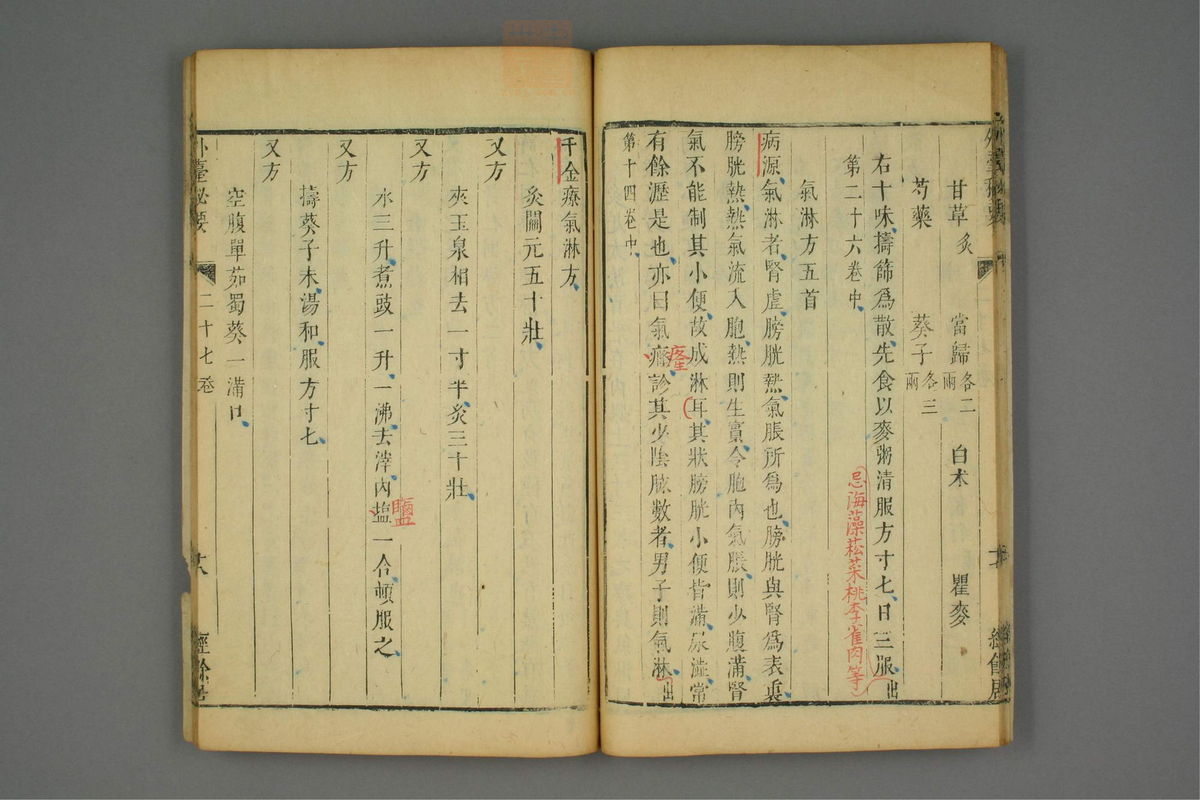 甘草炙 當歸各二兩 白朮 瞿麥
芍藥 葵子各三兩
右十味擣篩爲散先食以麥粥清服方寸匕日三服出
忌海藻菘菜桃李雀肉等
第二十六卷中
氣淋方五首
病源氣淋者腎虛膀胱熱氣脹所爲也膀胱與腎爲表裏
膀胱熱熱氣流入胞熱則生實令胞內氣脹則少腹滿腎
氣不能制其小便故成淋耳其狀膀胱小便皆滿尿澁常
有餘瀝是也亦曰氣癃診其少陰脉數者男子則氣淋出
癃
第十四卷中
千金療氣淋方
灸關元五十壯
又方
夾玉泉相去一寸半灸三十壯
又方
水三升煮豉一升一沸去滓內塩一合頓服之
鹽
又方
擣葵子末湯和服方寸匕
又方
空腹單茹蜀葵一滿口
外臺秘要 二十七卷 經餘居